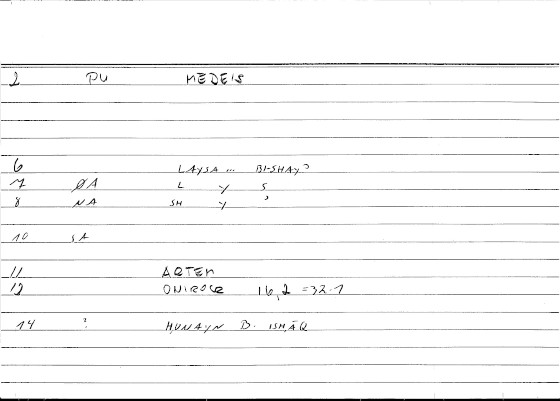 2 PU MEDEIS
6 LAYSA ... BI-SHAYʾ
7 ØA L Y S
8 NA SH Y ʾ
10 SA
11 ARTEM
12 ONIROCR 16,2 =32.1
14 ? HUNAYN B. ISHĀQ